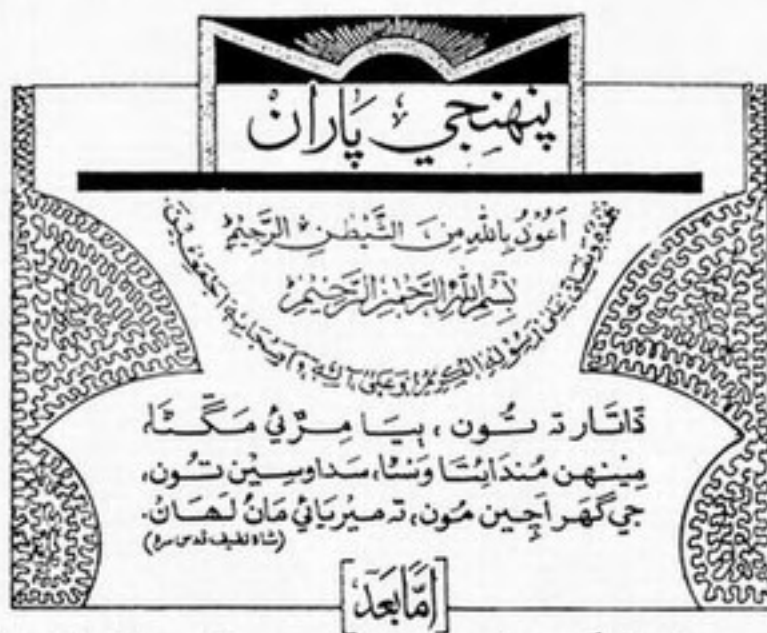 پنهنجي پاران
اَعُوْذُ بِاللّٰهِ مِنَ الشَّيْطٰنِ الرَّجِيْمِ
بِسْمِ اللّٰهِ الرَّحْمٰنِ الرَّحِيْمِ
نحمده ونصلي علىٰ رسوله الكريم وعلىٰ آله واصحابه اجمعين
ڏاتار تہ تُون، ٻِيَا مِڙئي مَڱڻا،
مِينهن مُندائِتا وَسڻا، سَدا وسِين تُون،
جي گهر اَچِين مُون، تہ ميرِيائي مانُ لَهان.
(شاه لطيف قدس سره)
[اَمَّا بَعْد]